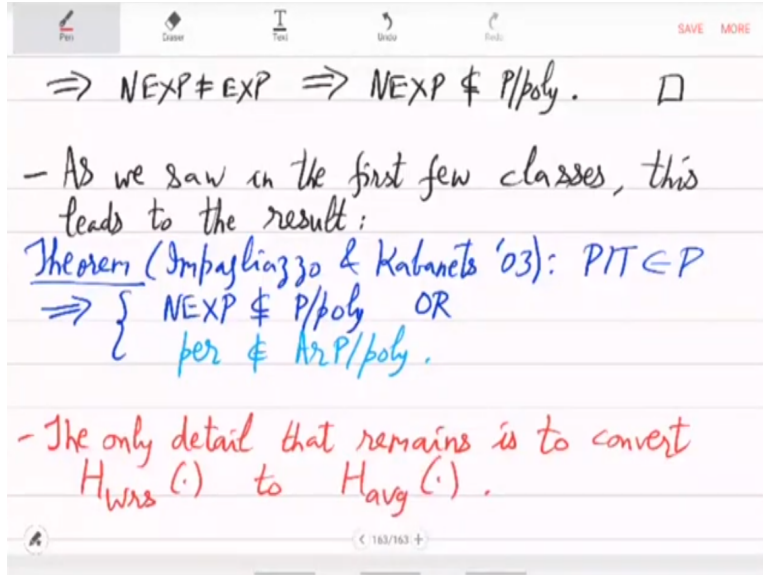 Pen Eraser Text Undo Redo SAVE MORE
⇒ NEXP ≠ EXP ⇒ NEXP ⊄ P/poly. □
- As we saw in the first few classes, this
leads to the result:
Theorem (Impagliazzo & Kabanets '03): PIT ∈ P
⇒ { NEXP ⊄ P/poly OR
per ∉ ArP/poly.
- The only detail that remains is to convert
H_wrs(·) to H_avg(·).
< 163/163 +